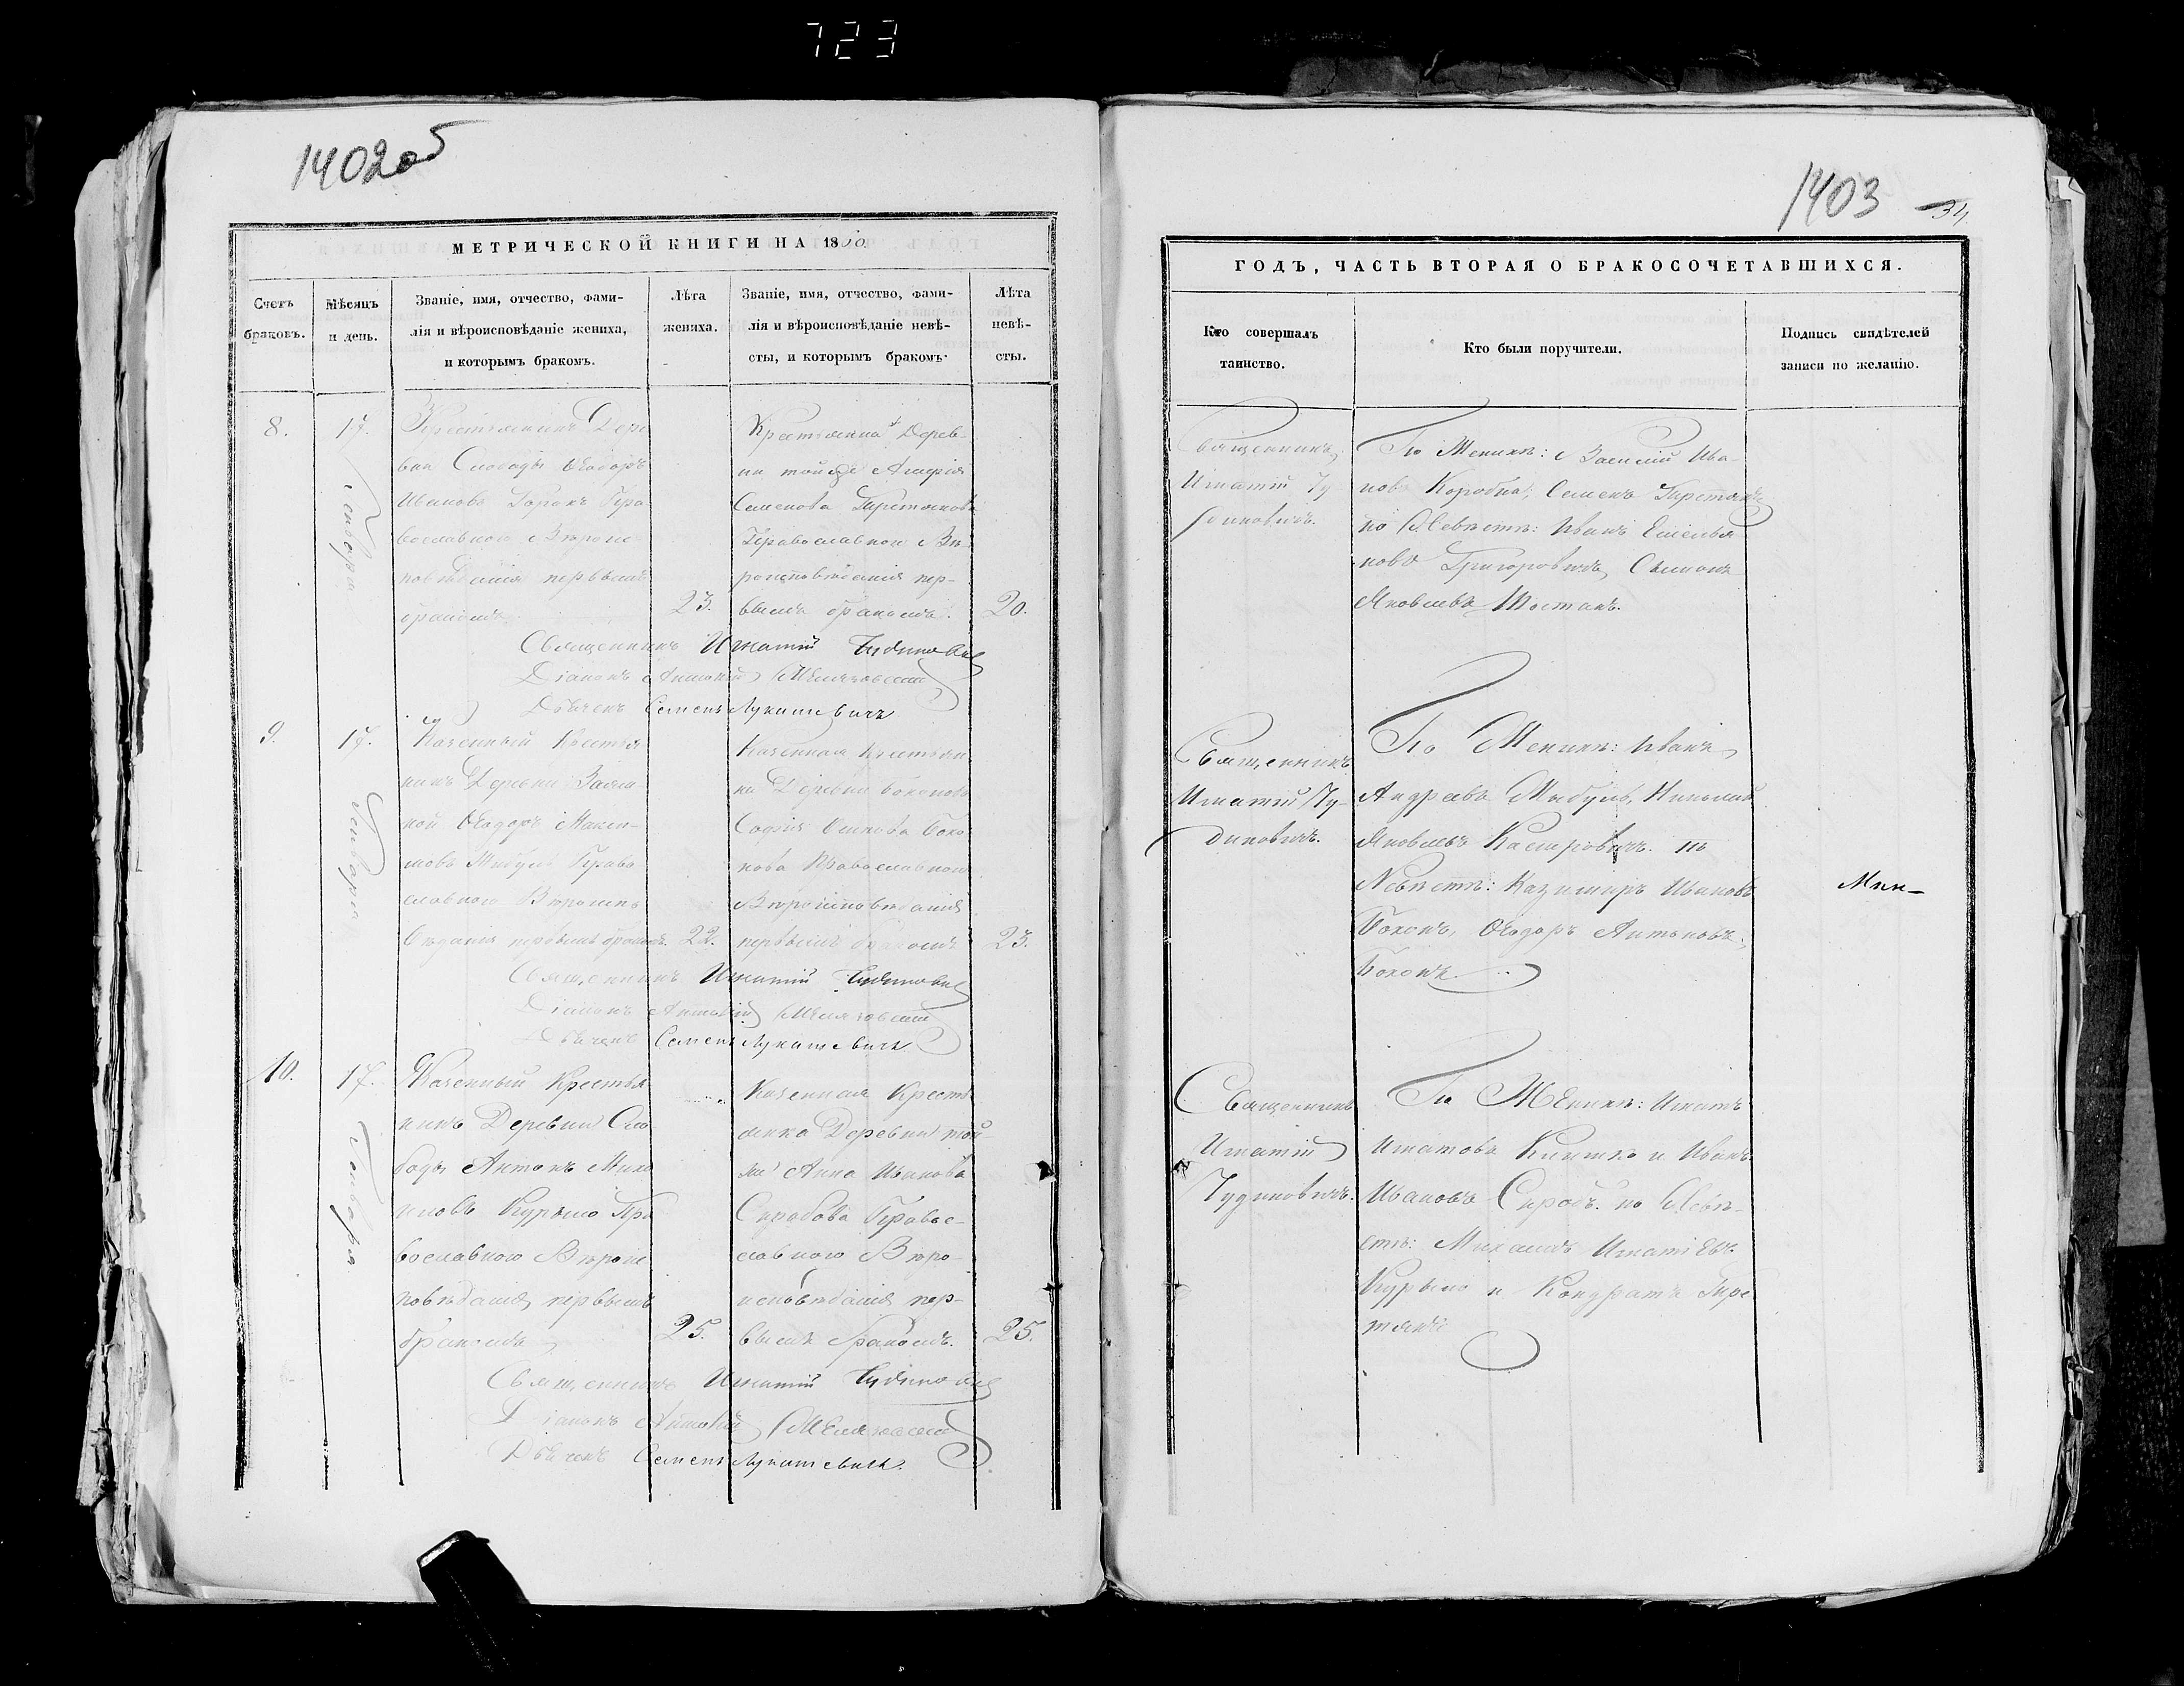 723
1402об
МЕТРИЧЕСКОЙ КНИГИ НА 1850.
Счетъ браковъ.
Мѣсяцъ и день.
Званіе, имя, отчество, фами-
лія и вѣроисповѣданіе жениха,
и которымъ бракомъ.
Лѣта
жениха.
Званіе, имя, отчество, фами-
лія и вѣроисповѣданіе невѣ-
сты, и которымъ бракомъ.
Лѣта
невѣ-
сты.
8.
17.
Генваря
Крестьянинъ Дере
вни Слободы Ѳеодоръ
Ивановъ Пра
вославного Вѣроис
повѣданія первымъ
бракомъ
23.
Крестьянка Дерев-
ни той же
Семенова
Православного Вѣ
роисповѣданія пер-
вымъ бракомъ.
20.
Священникъ Игнатій Чудиновичъ
Діаконъ Антоній
Дьячекъ Семенъ Лукашевичъ
9.
17.
Генваря
Казенный Крестья
нинъ Деревни
Ѳеодоръ Макси-
мовъ Право
славного Вѣроиспо
вѣданія первымъ бракомъ.
22.
Казенная Крестьян
ка Деревни Боконовъ
Софія Боко
нова Православного
Вѣроисповѣданія
первымъ бракомъ
23.
Священникъ Игнатій Чудиновичъ
Діаконъ Антоній
Дьячекъ Семенъ Лукашевичъ
10.
17.
Генваря
Казенный Крестья
нинъ Деревни Сло
боды Антонъ Миха
иловъ Курыло Пра
вославного Вѣроис
повѣданія первымъ
бракомъ
25.
Казенная Кресть
янка Деревни той
же Анна Иванова
Скробова Правос-
лавного Вѣро
исповѣданія пер-
вымъ бракомъ.
25.
Священникъ Игнатій Чудиновичъ
Діаконъ Антоній
Дьячекъ Семенъ Лукашевичъ.
1403
34
ГОДЪ, ЧАСТЬ ВТОРАЯ О БРАКОСОЧЕТАВШИХСЯ.
Кто совершалъ
таинство.
Кто были поручители.
Подпись свидѣтелей
записи по желанію.
Священникъ
Игнатій Чу
диновичъ.
По Женихѣ: Василій Ива-
новъ Коробка, Семенъ
по Невѣстѣ: Иванъ Емелья
новъ Григоровичъ,
Яковлевъ Шостакъ.
Священникъ
Игнатій Чу-
диновичъ.
По Женихѣ: Иванъ
Андреевъ Николай
Яковлевъ Касперовичъ. по
Невѣстѣ: Казимиръ Ивановъ
Боконъ, Ѳеодоръ Антоновъ
Боконъ.
Мин-
Священникъ
Игнатій
Чудиновичъ.
По Женихѣ: Игнатъ
Игнатовъ и Иванъ
Ивановъ Скробъ. по Невѣ-
стѣ: Михаилъ Игнатіевъ
Курыло и Кондратъ Тре
тякъ